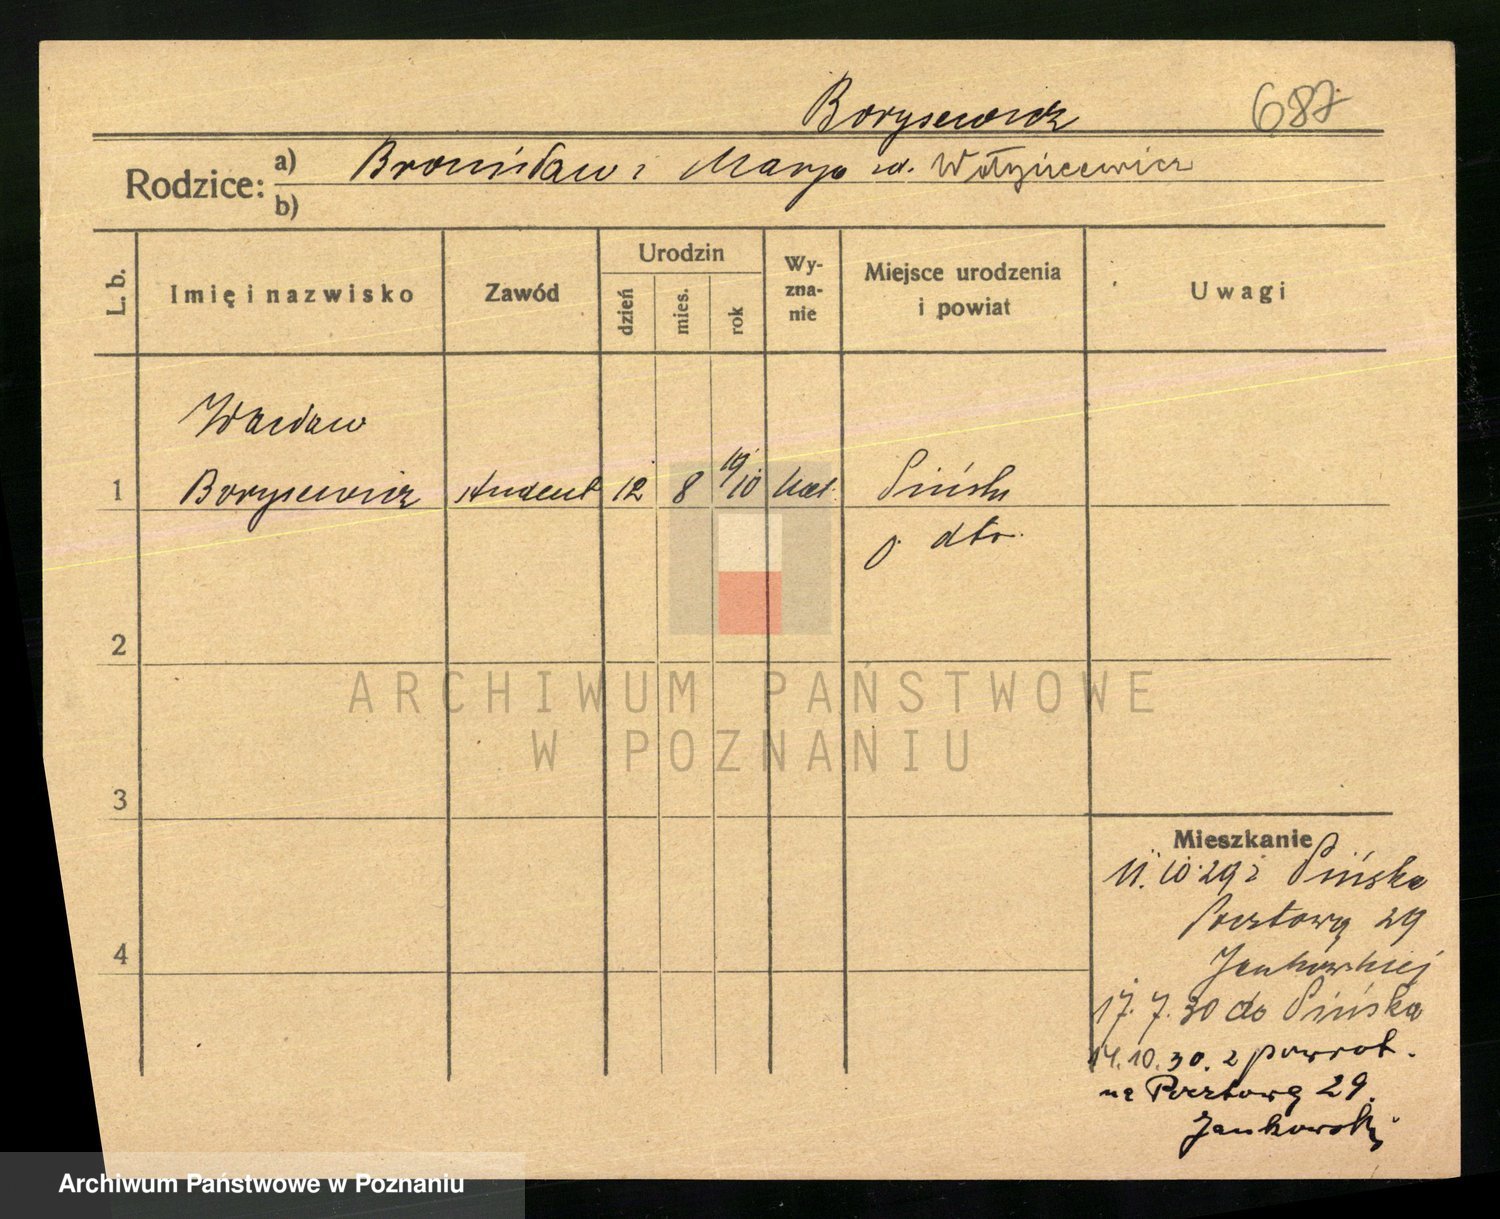 Borysewicz 687
Rodzice: a) Bronisław i Marja zd. Wołyńcewicz
b)
L. b. Imię i nazwisko Zawód Urodzin dzień mies. rok Wy-zna-nie Miejsce urodzenia i powiat Uwagi
Wacław
1 Borysewicz student 12 8 19/10 kat. Pińsk
O. dto.
2
3
4
Mieszkanie
11.10.29 z Pińska
Pocztowa 29
Jankowskiej
17.7.30 do Pińska
14.10.30. z powrot.
na Pocztową 29.
Jankowski
ARCHIWUM PAŃSTWOWE
W POZNANIU
Archiwum Państwowe w Poznaniu